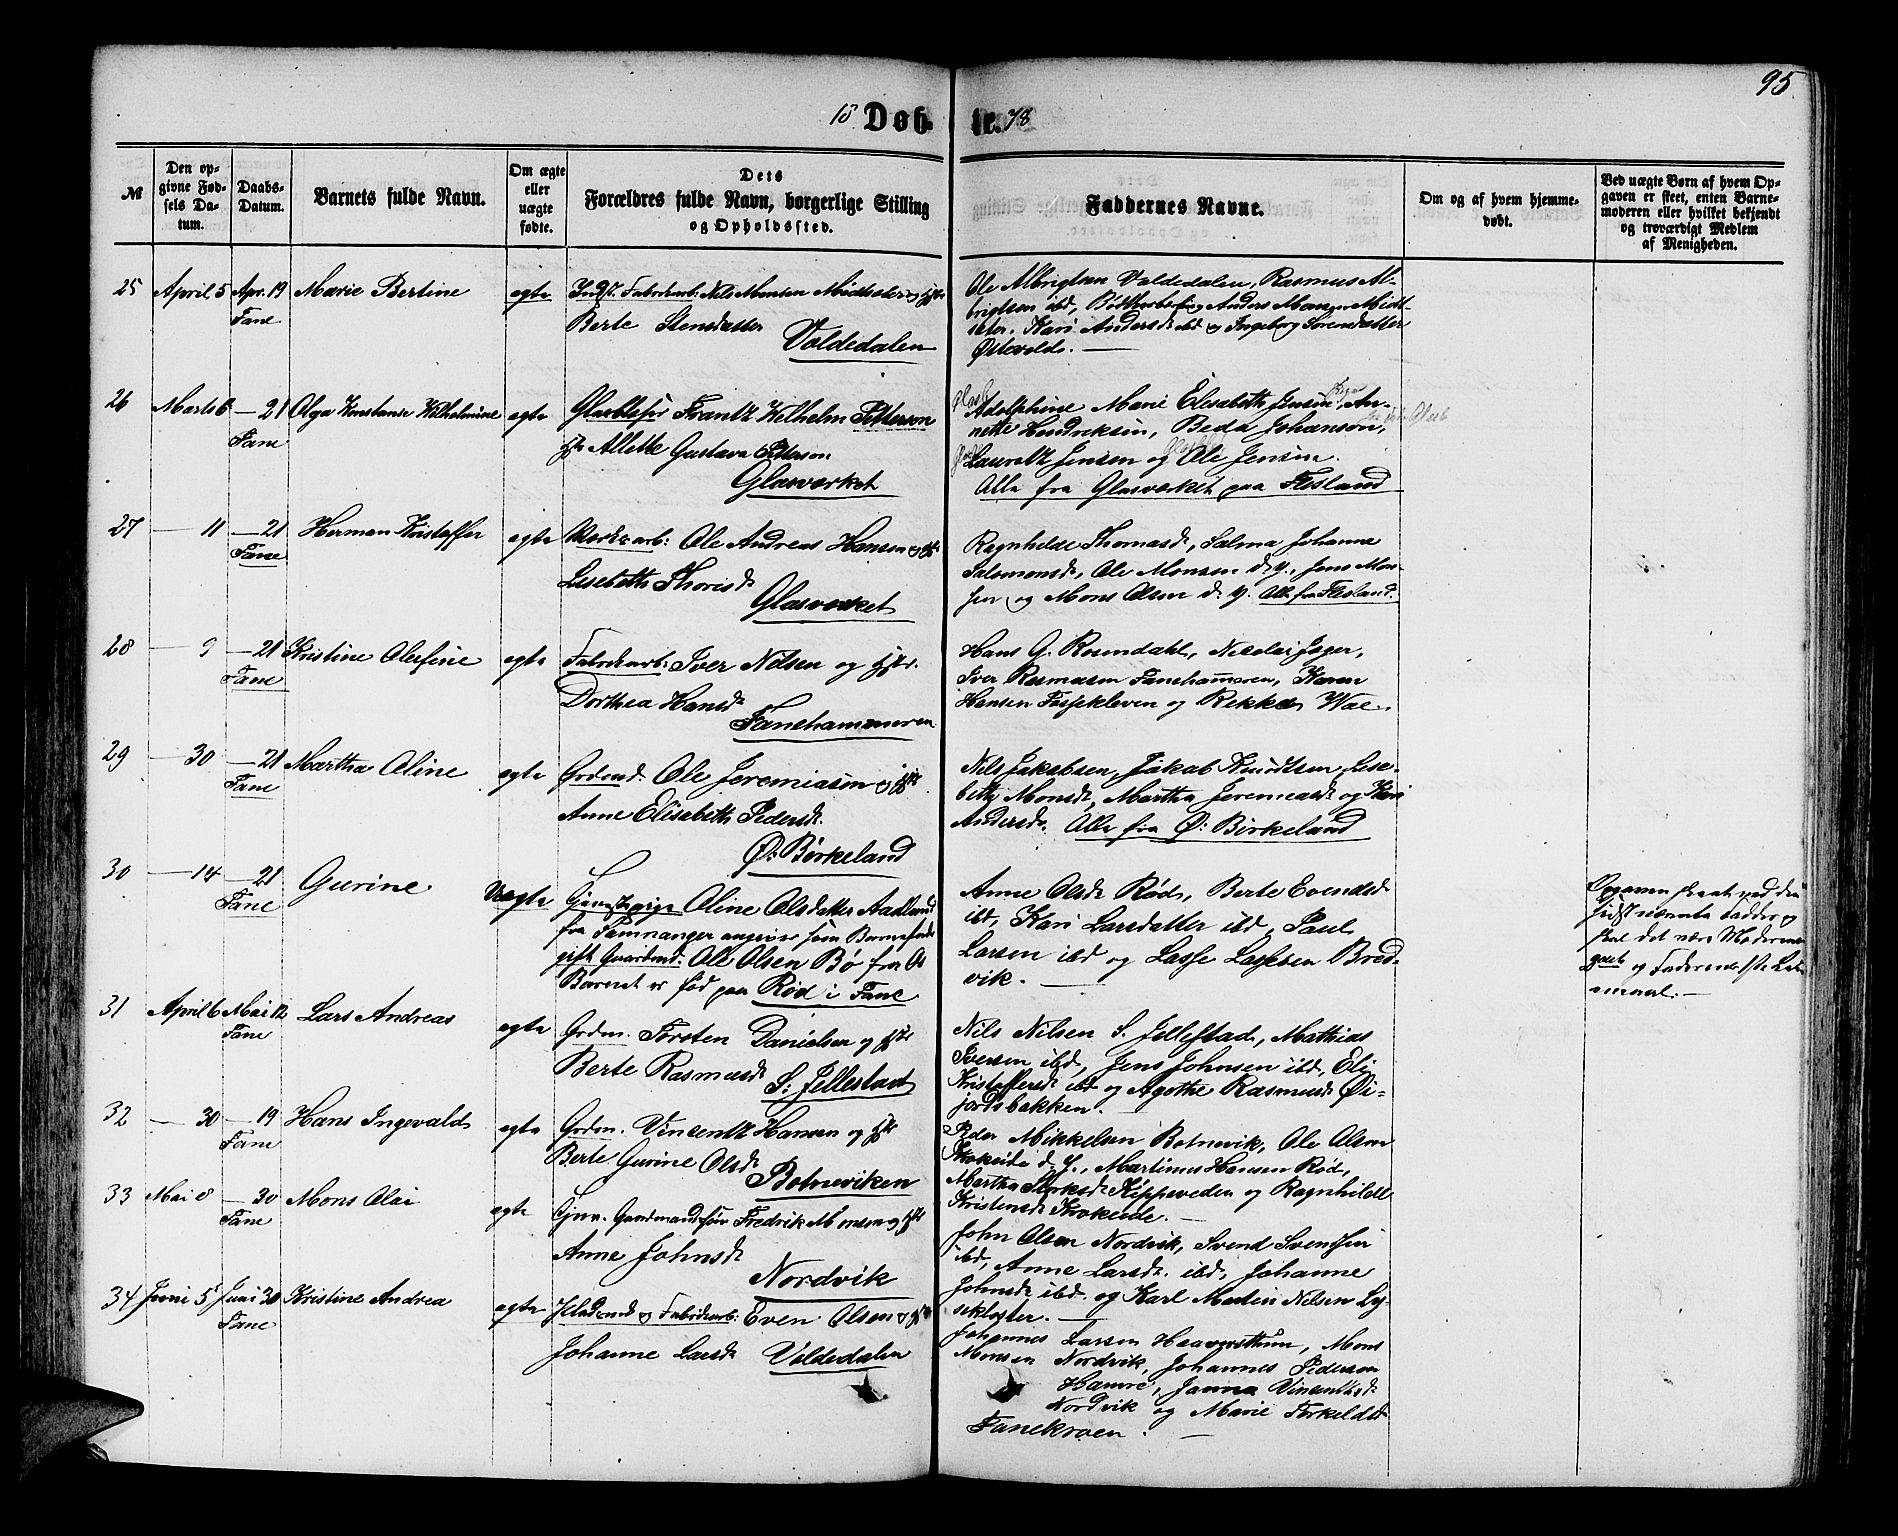 95
18 Døb- te. 78
№
Den op-
givne Fød-
sels Da-
tum.
Daabs-
Datum.
Barnets fulde Navn.
Om ægte
eller
uægte
fødte.
Dets
Forældres fulde Navn, borgerlige Stilling
og Opholdssted.
Faddernes Navne.
Om og af hvem hjemme-
døbt.
Ved uægte Børn af hvem Op-
gaven er skeet, enten Barne-
moderen eller hvilket bekjendt
og troværdigt Medlem
af Menigheden.
25 April 5 Apr. 19 Marie Bertine egte
Fane
Indst. Fabrikarb: Nils Monsen Midtsæter og Hst
Berte Stensdatter
Voldedalen
Ole Albrigtsen Voldedalen, Rasmus Al-
brigtsen ibd, Anders Monsen Midt-
sæter. Kari Andersd ibd og Ingeborg Sørensdatter
Østevold. —
26 Marts 6 — 21 Olga Konstanse Wilhelmine egte
Fane
Glasblæser Frantz Wilhelm Petterson
Hst Allette Gustava Petterson
Glasværket
Adolphine Marie Elisabeth Jensen, An-
nette Hendriksen, Beda Johanson,
Lauretz Jensen og Ole Jensen.
Alle fra Glasværket paa Flesland
27 — 11 — 21 Herman Kristoffer egte
Fane
Værksarb: Ole Andreas Hansen og Hst
Lisebeth Thorisd
Glasværket
Ragnhilde Thomasd, Salma Johanne
Salomonsd, Ole Monsen d. y., Jens Mon-
sen og Mons Olsen d. y. Alle fra Flesland.
28 — 9 — 21 Kristine Olufine egte
Fane
Fabrikarb: Iver Nilsen og Hstr.
Dorthea Hansd
Fanehammeren
Hans G. Rosendahl, Nicolai Jæger,
Iver Rasmusen Fanehammeren, Karen
Hansen Fossekleven og Rekka Wae.
29 — 30 — 21 Martha Oline egte
Fane
Grdmd. Ole Jeremiasen og Hst
Anne Elisabeth Pedersd.
Ø: Birkeland
Nils Jakobsen, Jakob Knudtsen, Lise-
beth Monsd, Martha Jeremiasd og Kari
Andersd. Alle fra Ø: Birkeland
30 — 14 — 21 Gurine Uægte
Fane
Tjenestepige Oline Olsdatter Aadland
fra Samnanger angiver som Barnefader
gift Gaardmd. Ole Olsen Bø fra Os
Barnet er fød paa Rød i Fane
Anne Olsd Rød, Berte Evensd
ibd, Kari Larsdatter ibd, Paul
Larsen ibd og Lasse Lassesen Bred-
vik. —
Opgaven skeet ved den
sidst nævnte Fadder og
skal det være Moderens
og Faderens 1ste Lei-
ermaal. —
31 April 6 Mai 12 Lars Andreas egte
Fane
Grdm. Torsten Danielsen og Hst
Berte Rasmusd
S: Jellestad
Nils Nilsen S. Jellestad, Mathias
Iversen ibd, Jens Johnsen ibd, Eli
Kristoffersd ibd og Agothe Rasmusd Øi-
jordsbakken.
32 — 30 — 19 Hans Ingevald egte
Fane
Grdm. Vincentz Hansen og Hst
Berte Gurine Olsd
Botneviken
Peder Mikkelsen Botnevik, Ole Olsen
Krokeide d. y., Martinus Hansen Rød,
Martha Kippeveden og Ragnhilde
Kristensd Krokeide. —
33 Mai 8 — 30 Mons Olai egte
Fane
Tjen. Gaardmandssøn Fredrik Monsen og Hst
Anne Johnsd
Nordvik
John Olsen Nordvik, Svend Svensen
ibd, Anne Larsd. ibd, Johanne
Johnsd ibd. og Karl Martin Nilsen Ly-
sekloster. —
34 Juni 5 Juni 30 Kristine Andrea egte
Fane
og Fabrikarb: Even Olsen og Hst
Johanne Larsd Voldedalen
Johannes Larsen Haaversthun, Mons
Monsen Nordvik, Johannes Pederson
Hamre, Janna Vincentsd
Nordvik og Marie Torkeldsd
Fanekroen. —